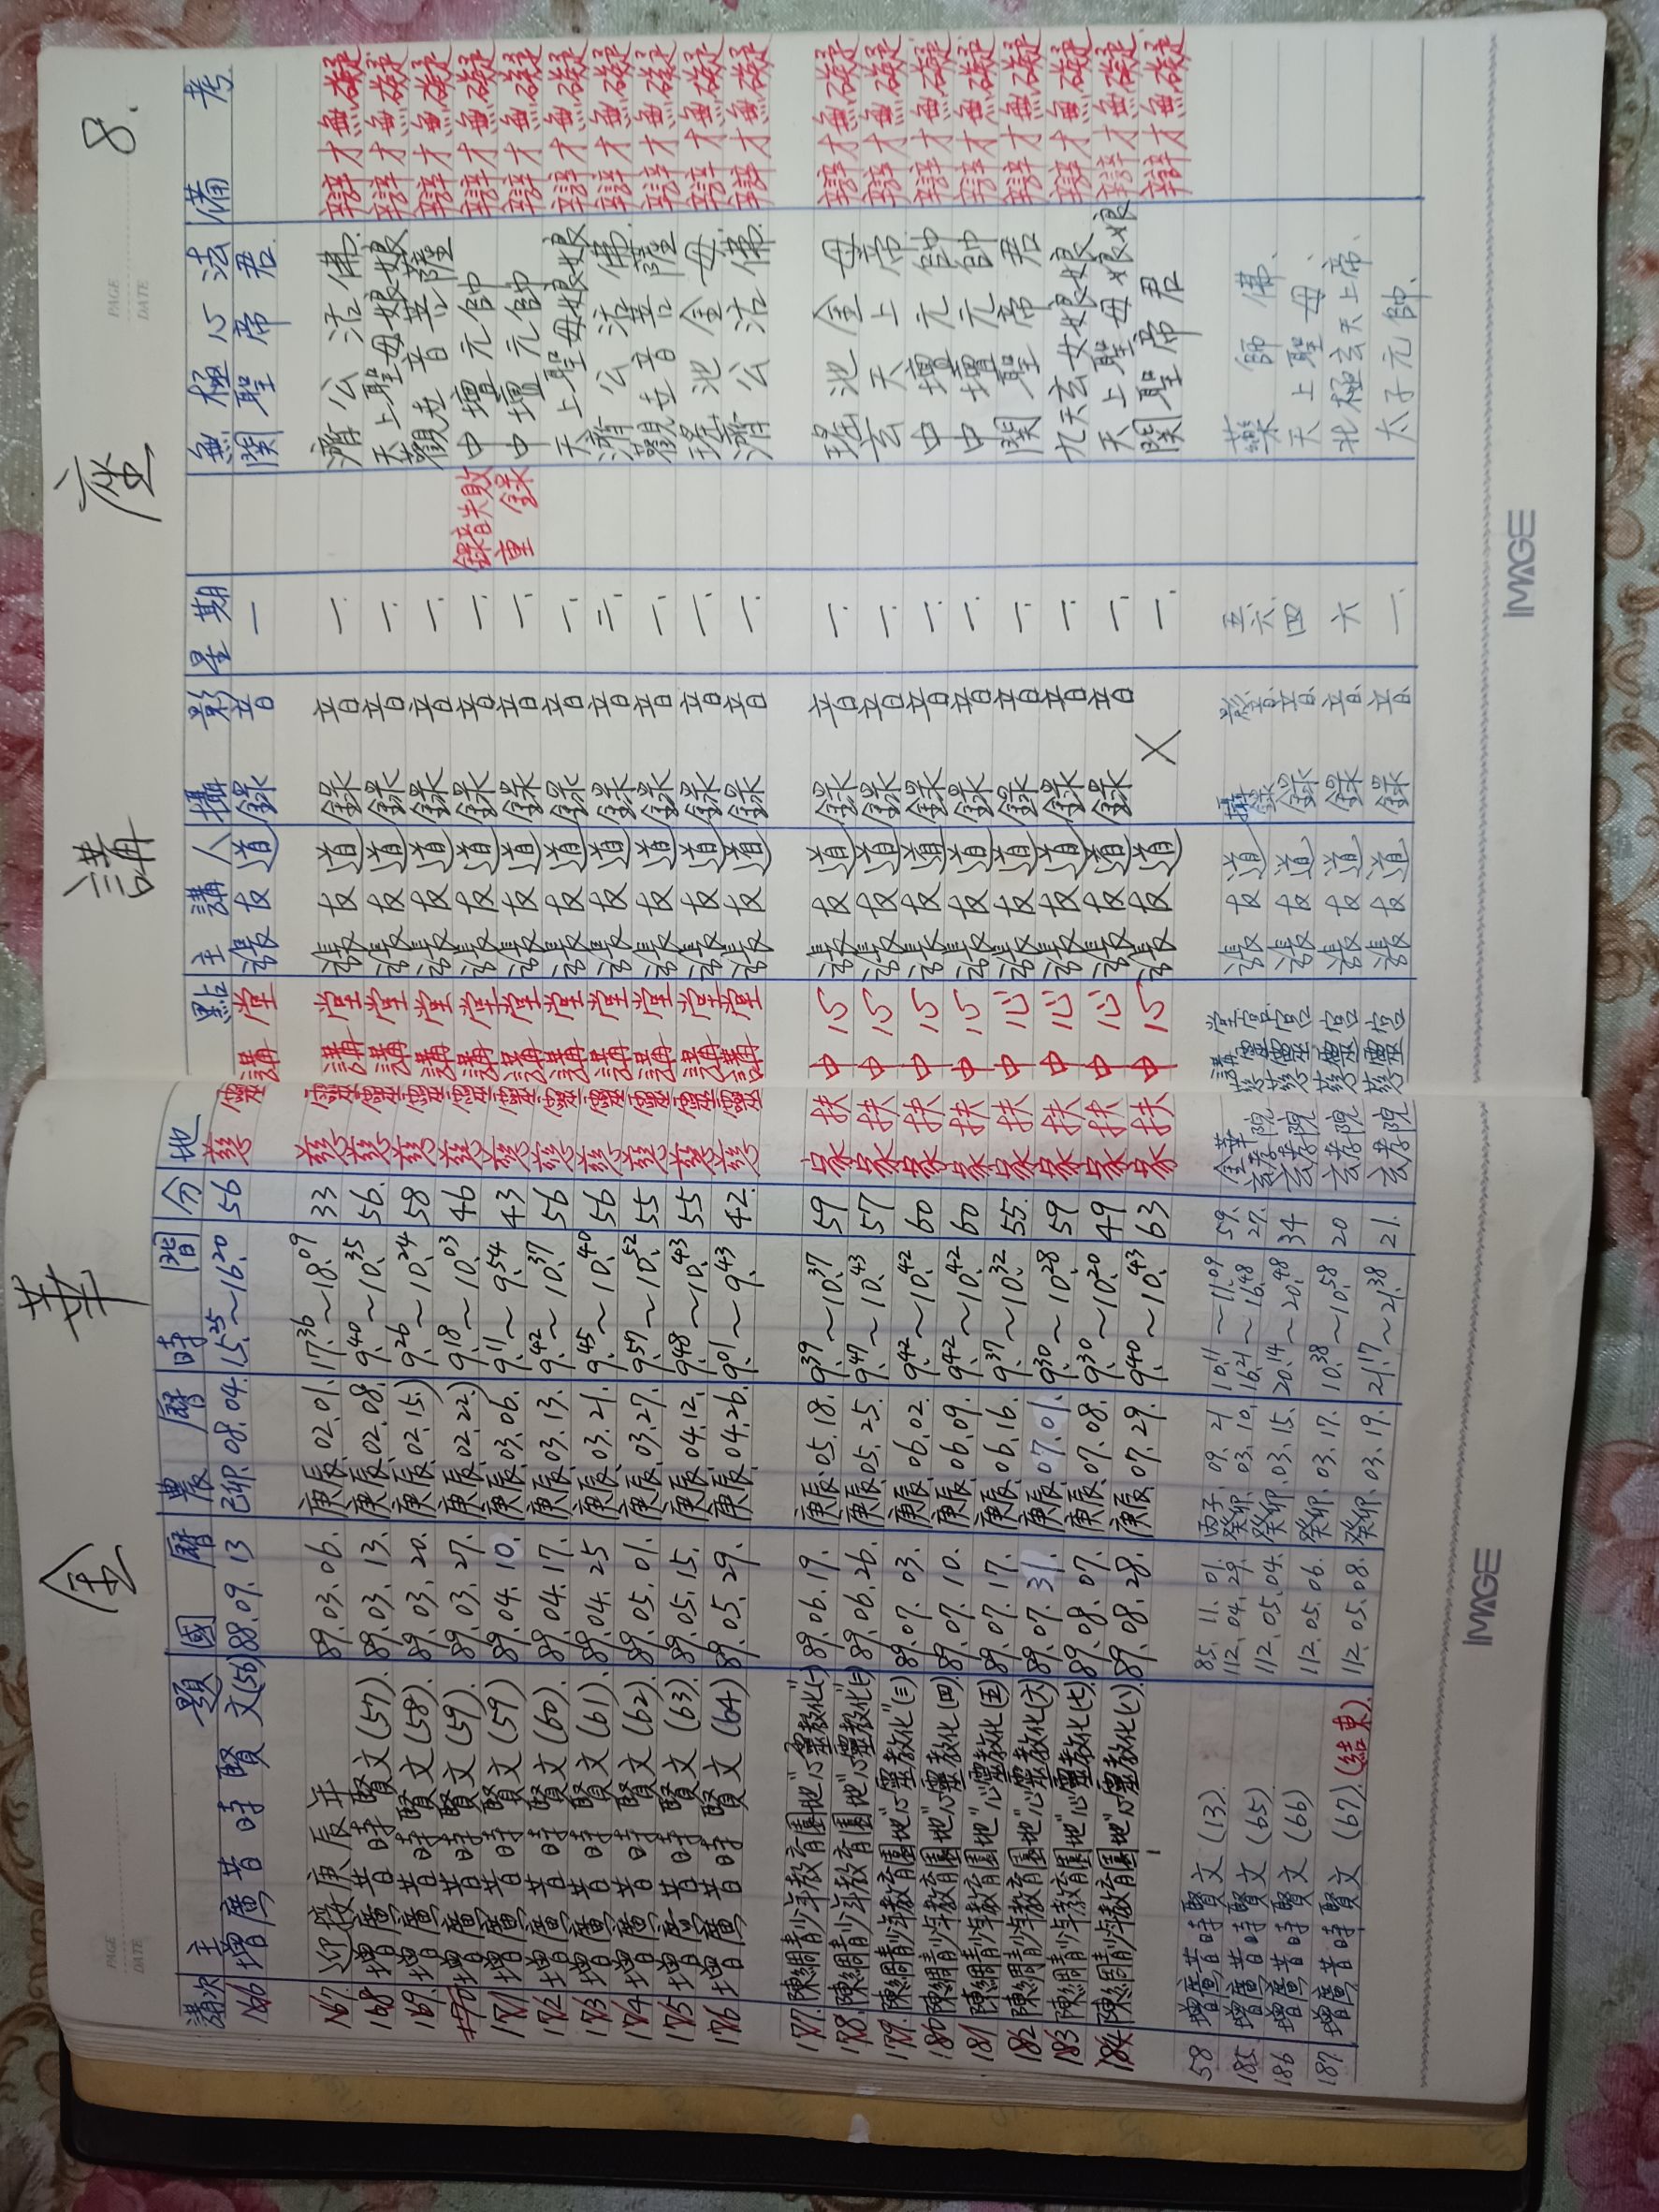 金 華 講 座 8.
講次 主 題 國 曆 農 曆 時 間 分 地 點 主 講 人 攝 影 星 期 無 極 心 法 備 考
166 增廣昔時賢文(56) 88.09.13 己卯.08.04. 15.25~16.20 56 慈 講堂 張友道 錄音 一 關聖帝君
167. 迎接庚辰年 89.03.06. 庚辰.02.01. 17.36~18.09 33 慈 講堂 張友道 錄音 一 濟公活佛 辯才無礙
168 增廣昔時賢文(57). 89.03.13. 庚辰.02.08. 9.40~10.35 56. 慈 講堂 張友道 錄音 一 天上聖母娘娘 辯才無礙
169. 增廣昔時賢文(58). 89.03.20. 庚辰.02.15. 9.26~10.24 58 慈 講堂 張友道 錄音 一 觀世音菩薩 辯才無礙
170 增廣昔時賢文(59). 89.03.27. 庚辰.02.22. 9.18~10.03 46 慈 講堂 張友道 錄音 錄音失敗 一 中壇元帥 辯才無礙
171 增廣昔時賢文(59) 89.04.10. 庚辰.03.06. 9.11~9.54 43 慈 講堂 張友道 錄音 重錄 一 中壇元帥 辯才無礙
172 增廣昔時賢文(60). 89.04.17. 庚辰.03.13. 9.42~10.37 56 慈 講堂 張友道 錄音 一 天上聖母娘娘 辯才無礙
173 增廣昔時賢文(61). 89.04.25 庚辰.03.21. 9.45~10.40 56 慈 講堂 張友道 錄音 二 濟公活佛 辯才無礙
174 增廣昔時賢文(62). 89.05.01. 庚辰.03.27. 9.57~10.52 55 慈 講堂 張友道 錄音 一 觀世音菩薩 辯才無礙
175 增廣昔時賢文(63). 89.05.15. 庚辰.04.12. 9.48~10.43 55 慈 講堂 張友道 錄音 一 瑤池金母 辯才無礙
176 增廣昔時賢文(64) 89.05.29. 庚辰.04.26. 9.01~9.43 42. 慈 講堂 張友道 錄音 一 濟公活佛 辯才無礙
177. 陳綢青少年教育園地"心靈教化(一) 89.06.19. 庚辰.05.18. 9.39~10.37 59 家扶中心 張友道 錄音 一 瑤池金母 辯才無礙
178. 陳綢青少年教育園地"心靈教化(二) 89.06.26. 庚辰.05.25. 9.47~10.43 57 家扶中心 張友道 錄音 一 玄天上帝 辯才無礙
179. 陳綢青少年教育園地"心靈教化(三) 89.07.03. 庚辰.06.02. 9.42~10.42 60 家扶中心 張友道 錄音 一 中壇元帥 辯才無礙
180 陳綢青少年教育園地"心靈教化(四) 89.07.10. 庚辰.06.09. 9.42~10.42 60 家扶中心 張友道 錄音 一 中壇元帥 辯才無礙
181 陳綢青少年教育園地"心靈教化(五) 89.07.17. 庚辰.06.16. 9.37~10.32 55. 家扶中心 張友道 錄音 一 關聖帝君 辯才無礙
182 陳綢青少年教育園地"心靈教化(六) 89.07.31. 庚辰.07.01. 9.30~10.28 59 家扶中心 張友道 錄音 一 九天玄女娘娘 辯才無礙
183 陳綢青少年教育園地"心靈教化(七) 89.08.07. 庚辰.07.08. 9.30~10.20 49 家扶中心 張友道 錄音 一 天上聖母娘娘 辯才無礙
184 陳綢青少年教育園地"心靈教化(八) 89.08.28. 庚辰.07.29. 9.40~10.43 63 家扶中心 張友道 X 一 關聖帝君 辯才無礙
58 增廣昔時賢文(13). 85.11.01. 丙子.09.21 10.11~11.09 59. 金華講堂 攝影 五
185. 增廣昔時賢文(65) 112.04.29. 癸卯.03.10. 16.21~16.48 27. 玄孝院慈靈宮 張友道 錄音 六 藥師佛
186 增廣昔時賢文(66) 112.05.04. 癸卯.03.15. 20.14~20.48 34 玄孝院慈靈宮 張友道 錄音 四 天上聖母
187. 增廣昔時賢文(67).(結束) 112.05.06. 癸卯.03.17. 10.38~10.58 20 玄孝院慈靈宮 張友道 錄音 六 北極玄天上帝
112.05.08. 癸卯.03.19. 21.17~21.38 21. 玄孝院慈靈宮 張友道 錄音 一 太子元帥
PAGE
DATE
PAGE
DATE
IMAGE
IMAGE